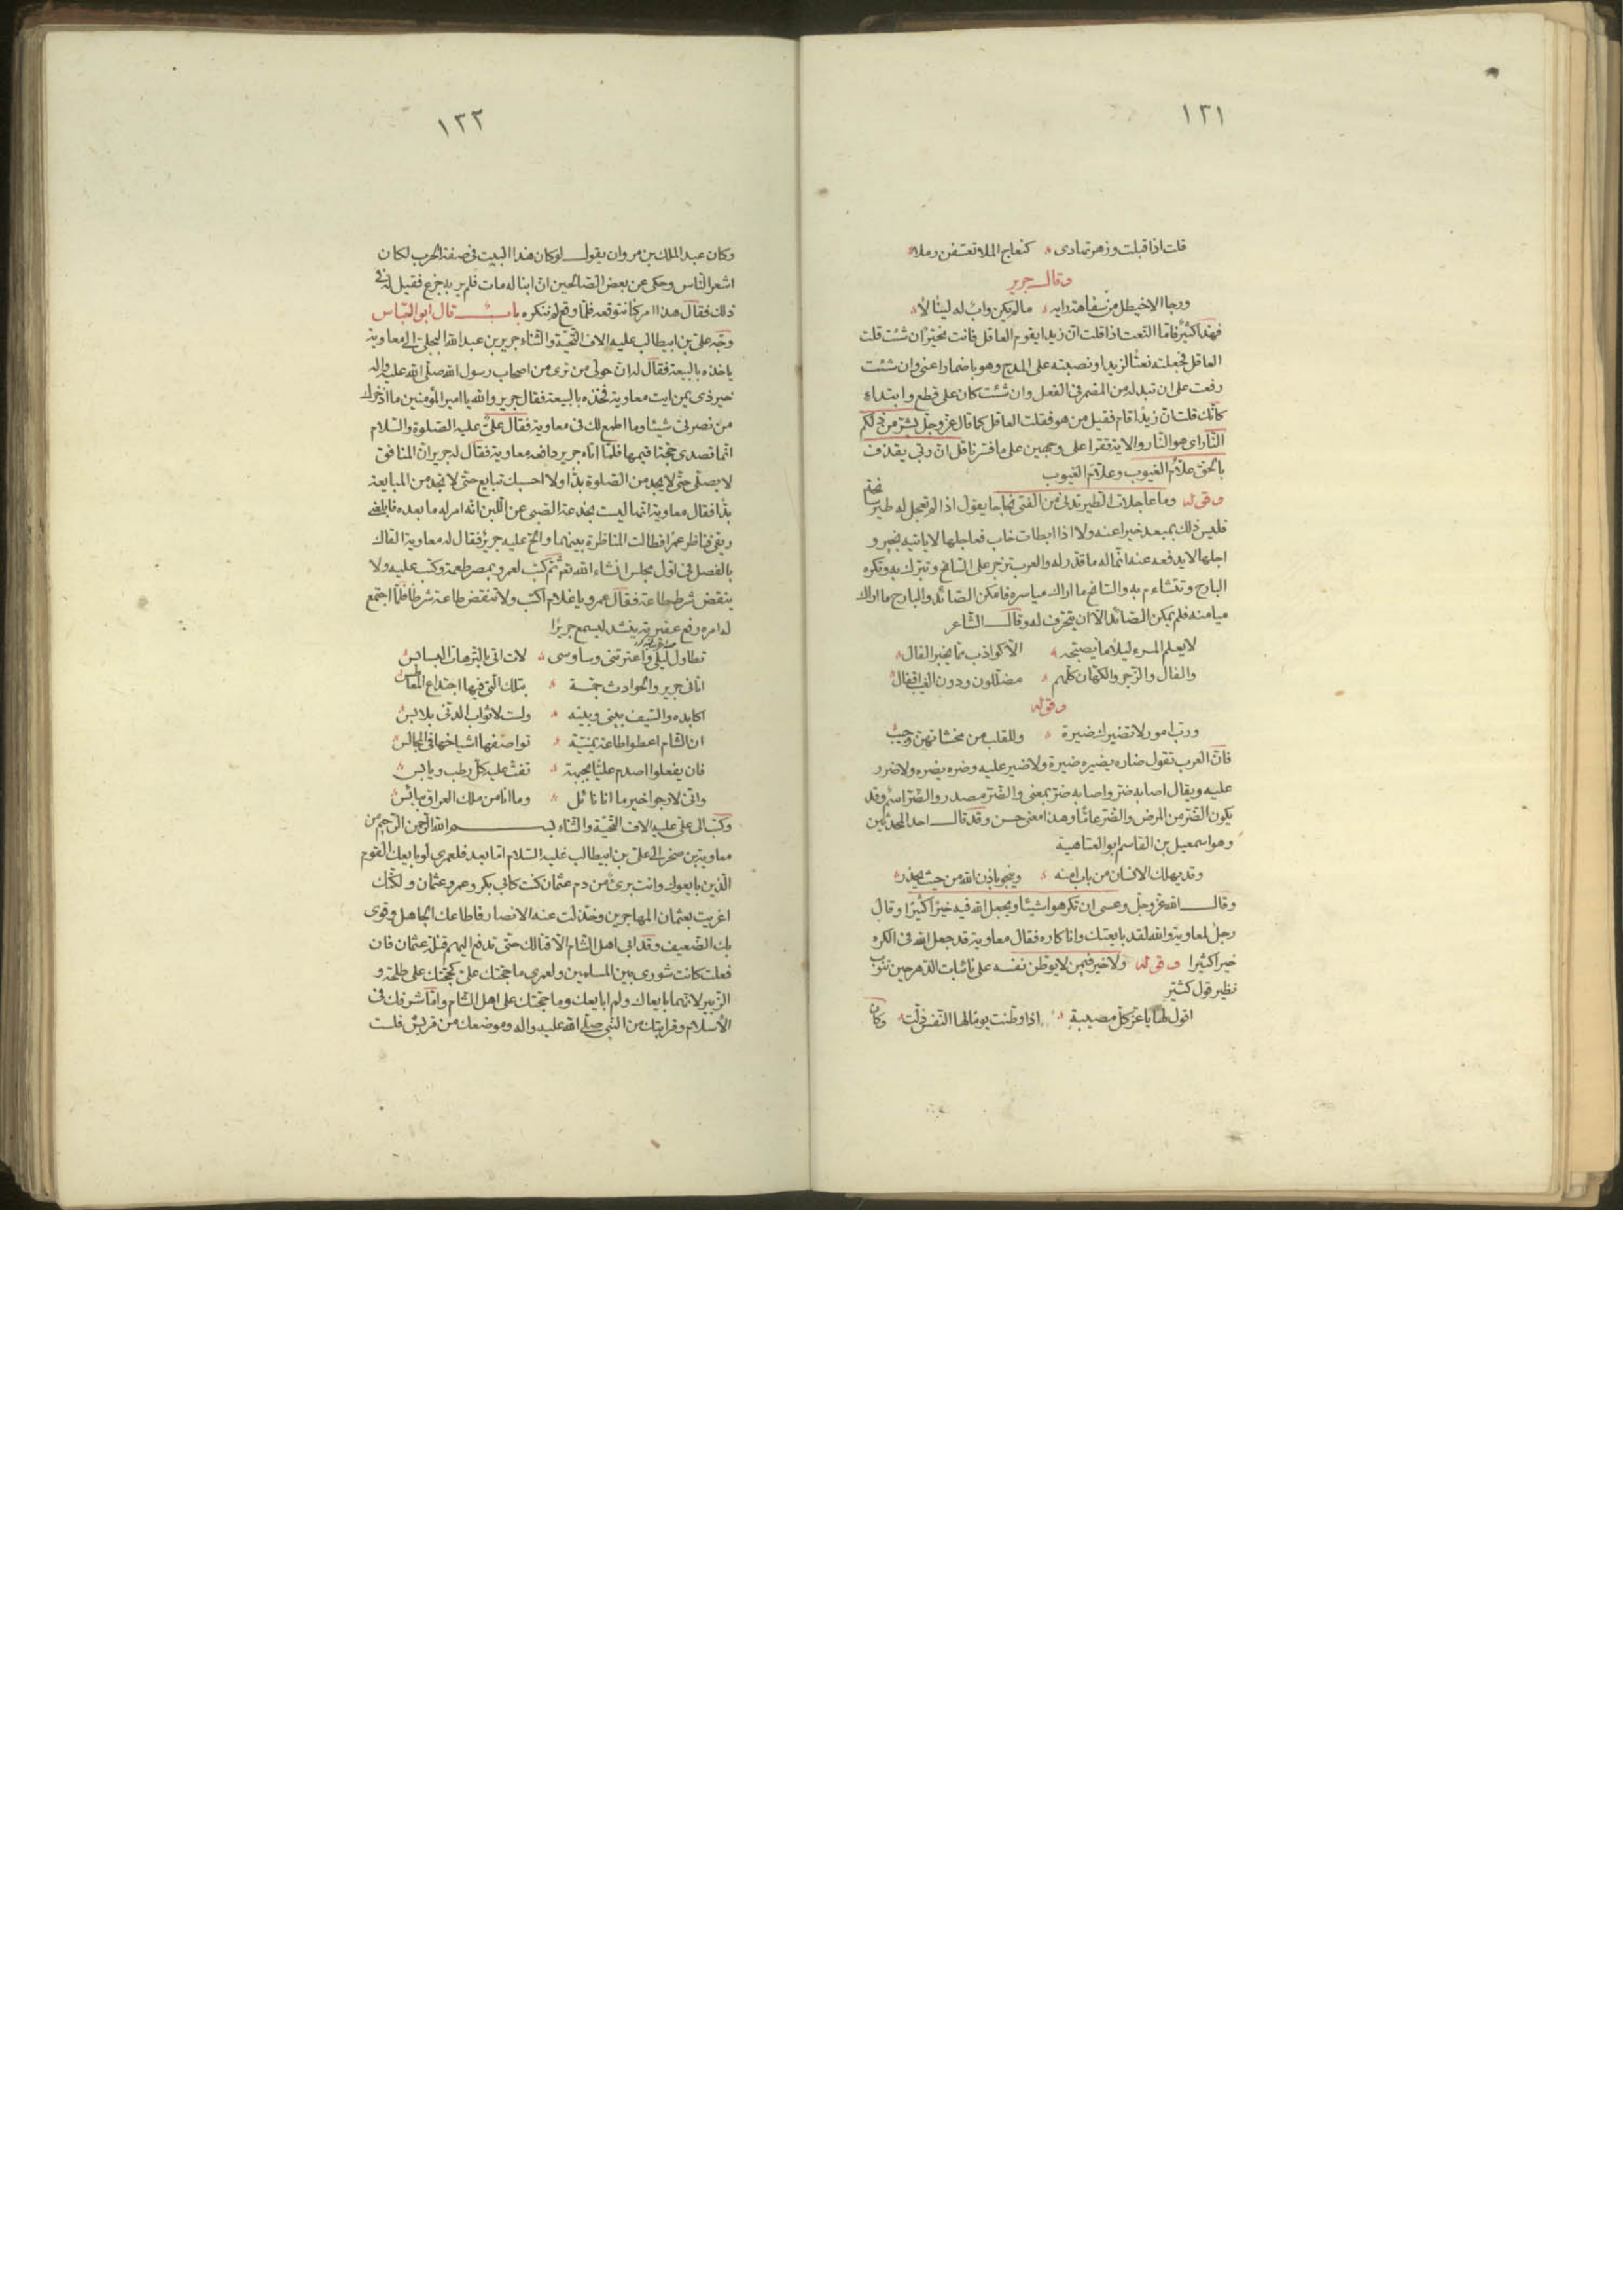 ١٢١
قلت اذا قبلت وزهر تهادى كنعاج الملا تعسفن رملا
وقال جرير
ورجا الاخيطل من سفاهة رايه ما لم يكن واب له لينالا
فهذا كثير فاما النعت اذا قلت ان زيدا يقوم العاقل فانت مخير ان شئت قلت
العاقل فجعلته نعتا لزيد او نصبته على المدح وهو باضمار اعنى وان شئت
رفعت على ان تبدله من المضمر فى الفعل وان شئت كان على قطع وابتداء
كانك قلت ان زيدا قام فقيل من هو فقلت العاقل كما قال عز وجل بشر من ذلكم
النار اى هو النار والاية تقرا على وجهين على ما فسرنا قل ان ربى يقذف
بالحق علام الغيوب وعلام الغيوب
وقوله وما عاجلات الطير تدنى من الفتى نجاحا يقول اذا لم تعجل له طير سانحة
فليس ذلك بمبعد خيرا عنه ولا اذا ابطات خاب فعاجلها لا ياتيه بخير و
اجلها لا يدفعه عنه انما له ما قدر له والعرب تزجر على السانح وتتبرك به وتكره
البارح وتتشاءم به والسانح ما اراك مياسره فامكن الصائد والبارح ما اراك
ميامنه فلم يمكن الصائد الا ان يتحرف له وقال الشاعر
لا يعلم المرء ليلا ما يصبحه الا كواذب مما يخبر الفال
والفال والزجر والكهان كلهم مضللون ودون الغيب اقفال
وقوله
ورب امور لا تضيرك ضيرة وللقلب من مخشاتهن وجيب
فان العرب تقول ضاره يضيره ضيرة ولا ضير عليه وضره يضره ولا ضرر
عليه ويقال اصابه ضر واصابه ضر بمعنى والضر مصدر والضر اسم وقد
يكون الضر من المرض والضر عاما وهذا معنى حسن وقد قال احد المحدثين
وهو اسمعيل بن القاسم ابو العتاهية
وقد يهلك الانسان من باب امنه وينجو باذن الله من حيث يحذر
وقال الله عز وجل وعسى ان تكرهوا شيئا ويجعل الله فيه خيرا كثيرا وقال
رجل لمعاوية والله لقد بايعتك وانا كاره فقال معاوية قد جعل الله فى الكره
خيرا كثيرا وقوله ولا خير فيمن لا يوطن نفسه على نائبات الدهر حين تنوب
نظير قول كثير
اقول لها يا عز كل مصيبة اذا وطنت يوما لها النفس ذلت وكان
١٢٢
وكان عبد الملك بن مروان يقول لو كان هذا البيت فى صفة الحرب لكان
اشعر الناس وحكى عن بعض الصالحين ان ابنا له مات فلم ير به جزع فقيل له فى
ذلك فقال هذا امر كنا نتوقعه فلما وقع لم ننكره باب قال ابو العباس
وجه على بن ابيطالب عليه الاف التحية والثناء جرير بن عبد الله البجلى الى معاوية
ياخذه بالبيعة فقال له ان حولى من ترى من اصحاب رسول الله صلى الله عليه واله
خير ذى يمن ايت معاوية فخذه بالبيعة فقال جرير والله يا امير المؤمنين ما ادخرك
من نصرتى شيئا وما اطمع لك فى معاوية فقال على عليه الصلوة والسلام
انما قصدى حجة اقيمها فلما اتاه جرير دافعه معاوية فقال له جرير ان المنافق
لا يصلى حتى لا يجد من الصلوة بدا ولا احسبك تبايع حتى لا تجد من المبايعة
بدا فقال معاوية انها ليست بخدعة الصبى عن اللبن انه امر له ما بعده فابلعنى
ريقى فناظر عمرا فطالت المناظرة بينهما والح عليه جرير فقال له معاوية القاك
بالفصل فى اول مجلس انشاء الله تعم ثم كتب لعمرو بمصر طعمة وكتب عليه ولا
ينقض شرط طاعة فقال عمرو يا غلام اكتب ولا تنقض طاعة شرطا فلما اجتمع
له امره رفع عقيرته ينشد ليسمع جريرا
تطاول ليلى واعترتنى وساوسى لات اتى بالترهات البسابس
اتانى جرير والحوادث جمة بتلك التى فيها اجتداع المعاطس
اكابده والسيف بينى وبينه ولست لاثواب الدنى بلابس
ان الشام اعطوا طاعة يمنية تواصفها اشياخها فى المجالس
فان يفعلوا اصدم عليا بجبهة تفت عليه كل رطب ويابس
وانى لارجوا خير ما انا نائل وما انا من ملك العراق بيائس
وكتب الى على عليه الاف التحية والثناء بسم الله الرحمن الرحيم من
معاوية بن صخر الى على بن ابيطالب عليه السلام اما بعد فلعمرى لو بايعك القوم
الذين بايعوك وانت برئ من دم عثمان كنت كابى بكر وعمر وعثمان ولكنك
اغريت بعثمان المهاجرين وخذلت عنه الانصار فاطاعك الجاهل وقوى
بك الضعيف وقد ابى اهل الشام الا قتالك حتى تدفع اليهم قتلة عثمان فان
فعلت كانت شورى بين المسلمين ولعمرى ما حجتك على كحجتك على طلحة و
الزبير لانهما بايعاك ولم ابايعك وما حجتك على اهل الشام واما شرفك فى
الاسلام وقرابتك من النبى صلى الله عليه واله وموضعك من قريش فلست